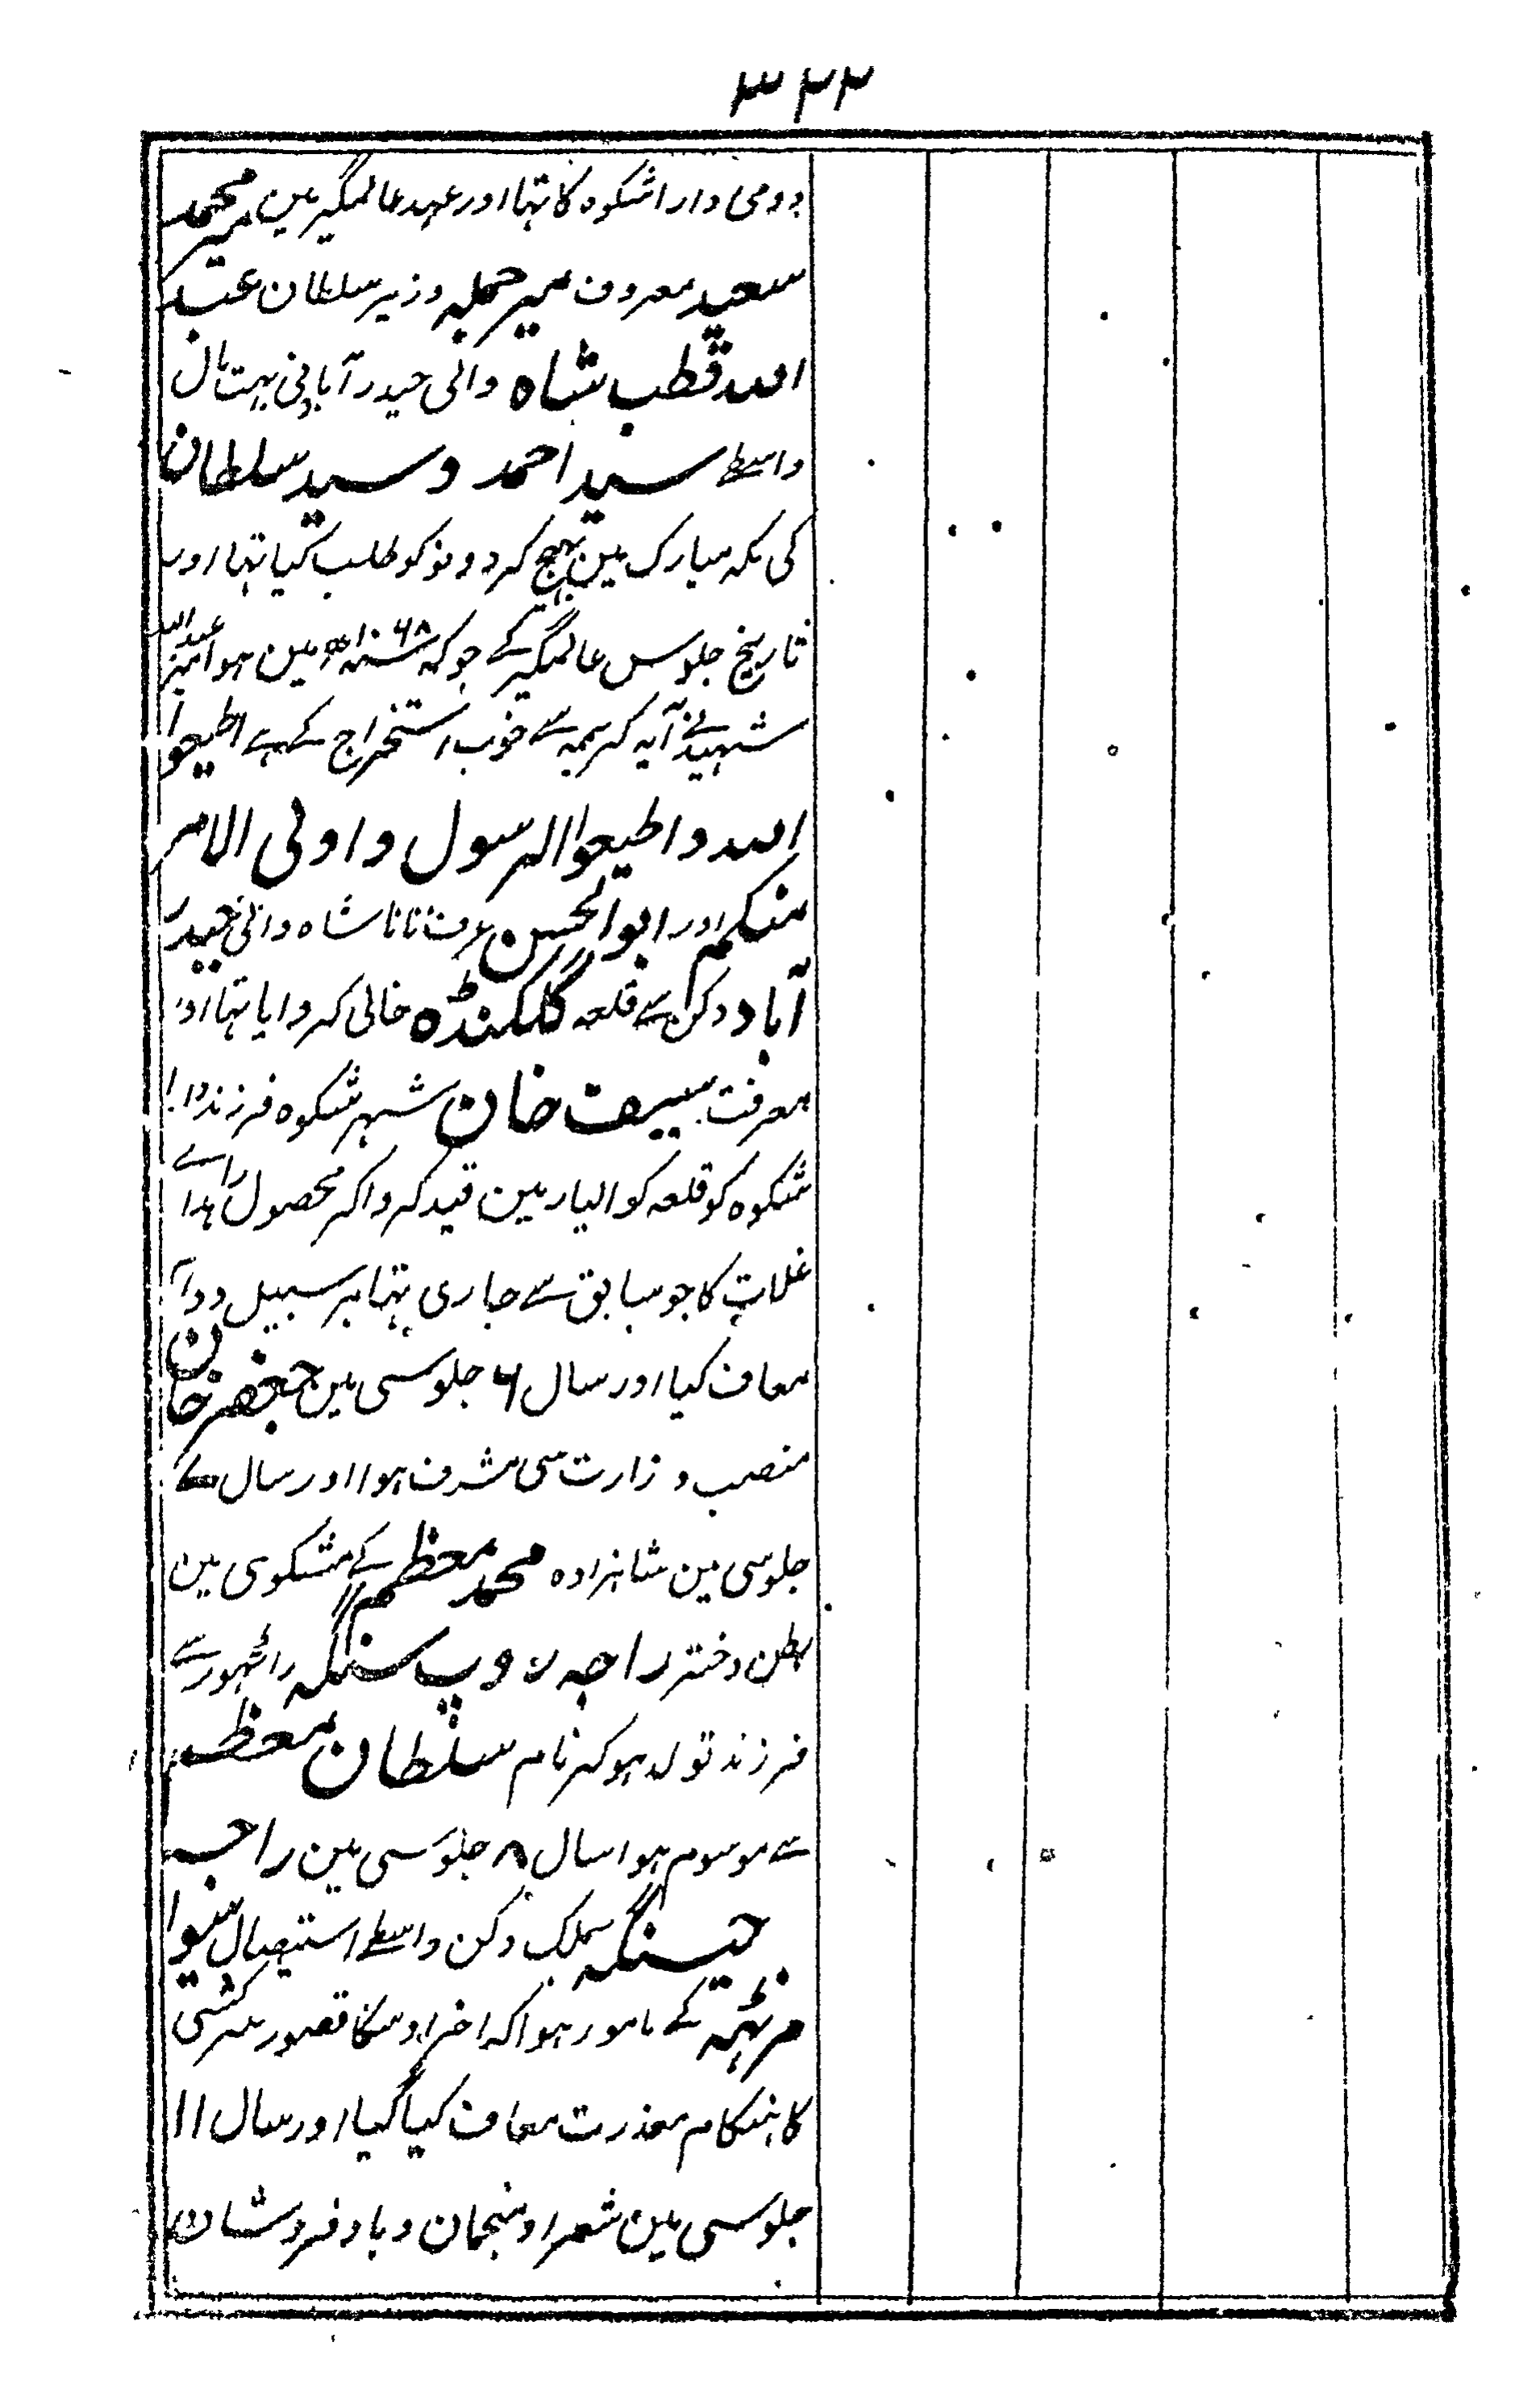 ۳۲۲
دومی داراشکوہ کا تہا اور عہد عالمگیر مین میر محمد
سعید معروف میر جملہ وزیر سلطان عبد
اللہ قطب شاہ والی حیدر آباد نی بہت مال
واسطے سید احمد و سید سلطان
کی مکہ مبارک مین بہیج کر دونو کو طلب کیا تہا اور
تاریخ جلوس عالمگیر کے جو کہ سنہ ۱۰۶۸ مین ہوا میر عبد اللہ
شہید نے آیہ کریمہ سے خوب استخراج کے ہے اطیعوا
اللہ و اطیعوا الرسول و اولی الامر
منکم اور ابوالحسن عرف تانا شاہ والی حیدر
آباد دکن سے قلعہ گلکنڈہ خالی کروایا تہا اور
معرفت سیف خان شہر شکوہ فرزند دارا
شکوہ کو قلعہ کوالیار مین قید کرواکر محصول راے ہدا
غلات کا جو سابق سے جاری تہا بر سبیل دوآ
معاف کیا اور سال ۶ جلوسی مین جعفر خان
منصب وزارت سی مشرف ہوا اور سال ۷
جلوسی مین شاہزادہ محمد معظم کے مشکوی مین
بطن دختر راجہ روپ سنگہ راٹہور سے
فرزند تولد ہوکر نام سلطان معظم
سے موسوم ہوا سال ۸ جلوسی مین راجہ
جیسنگہ بملک دکن واسطے استیصال سیوا
مرہٹہ کے مامور ہوا کہ اخر اوسکا قصور سرکشی
کا ہنگام معذرت معاف کیا گیا اور سال ۱۱
جلوسی مین شعرا و منجمان و باد فروشان